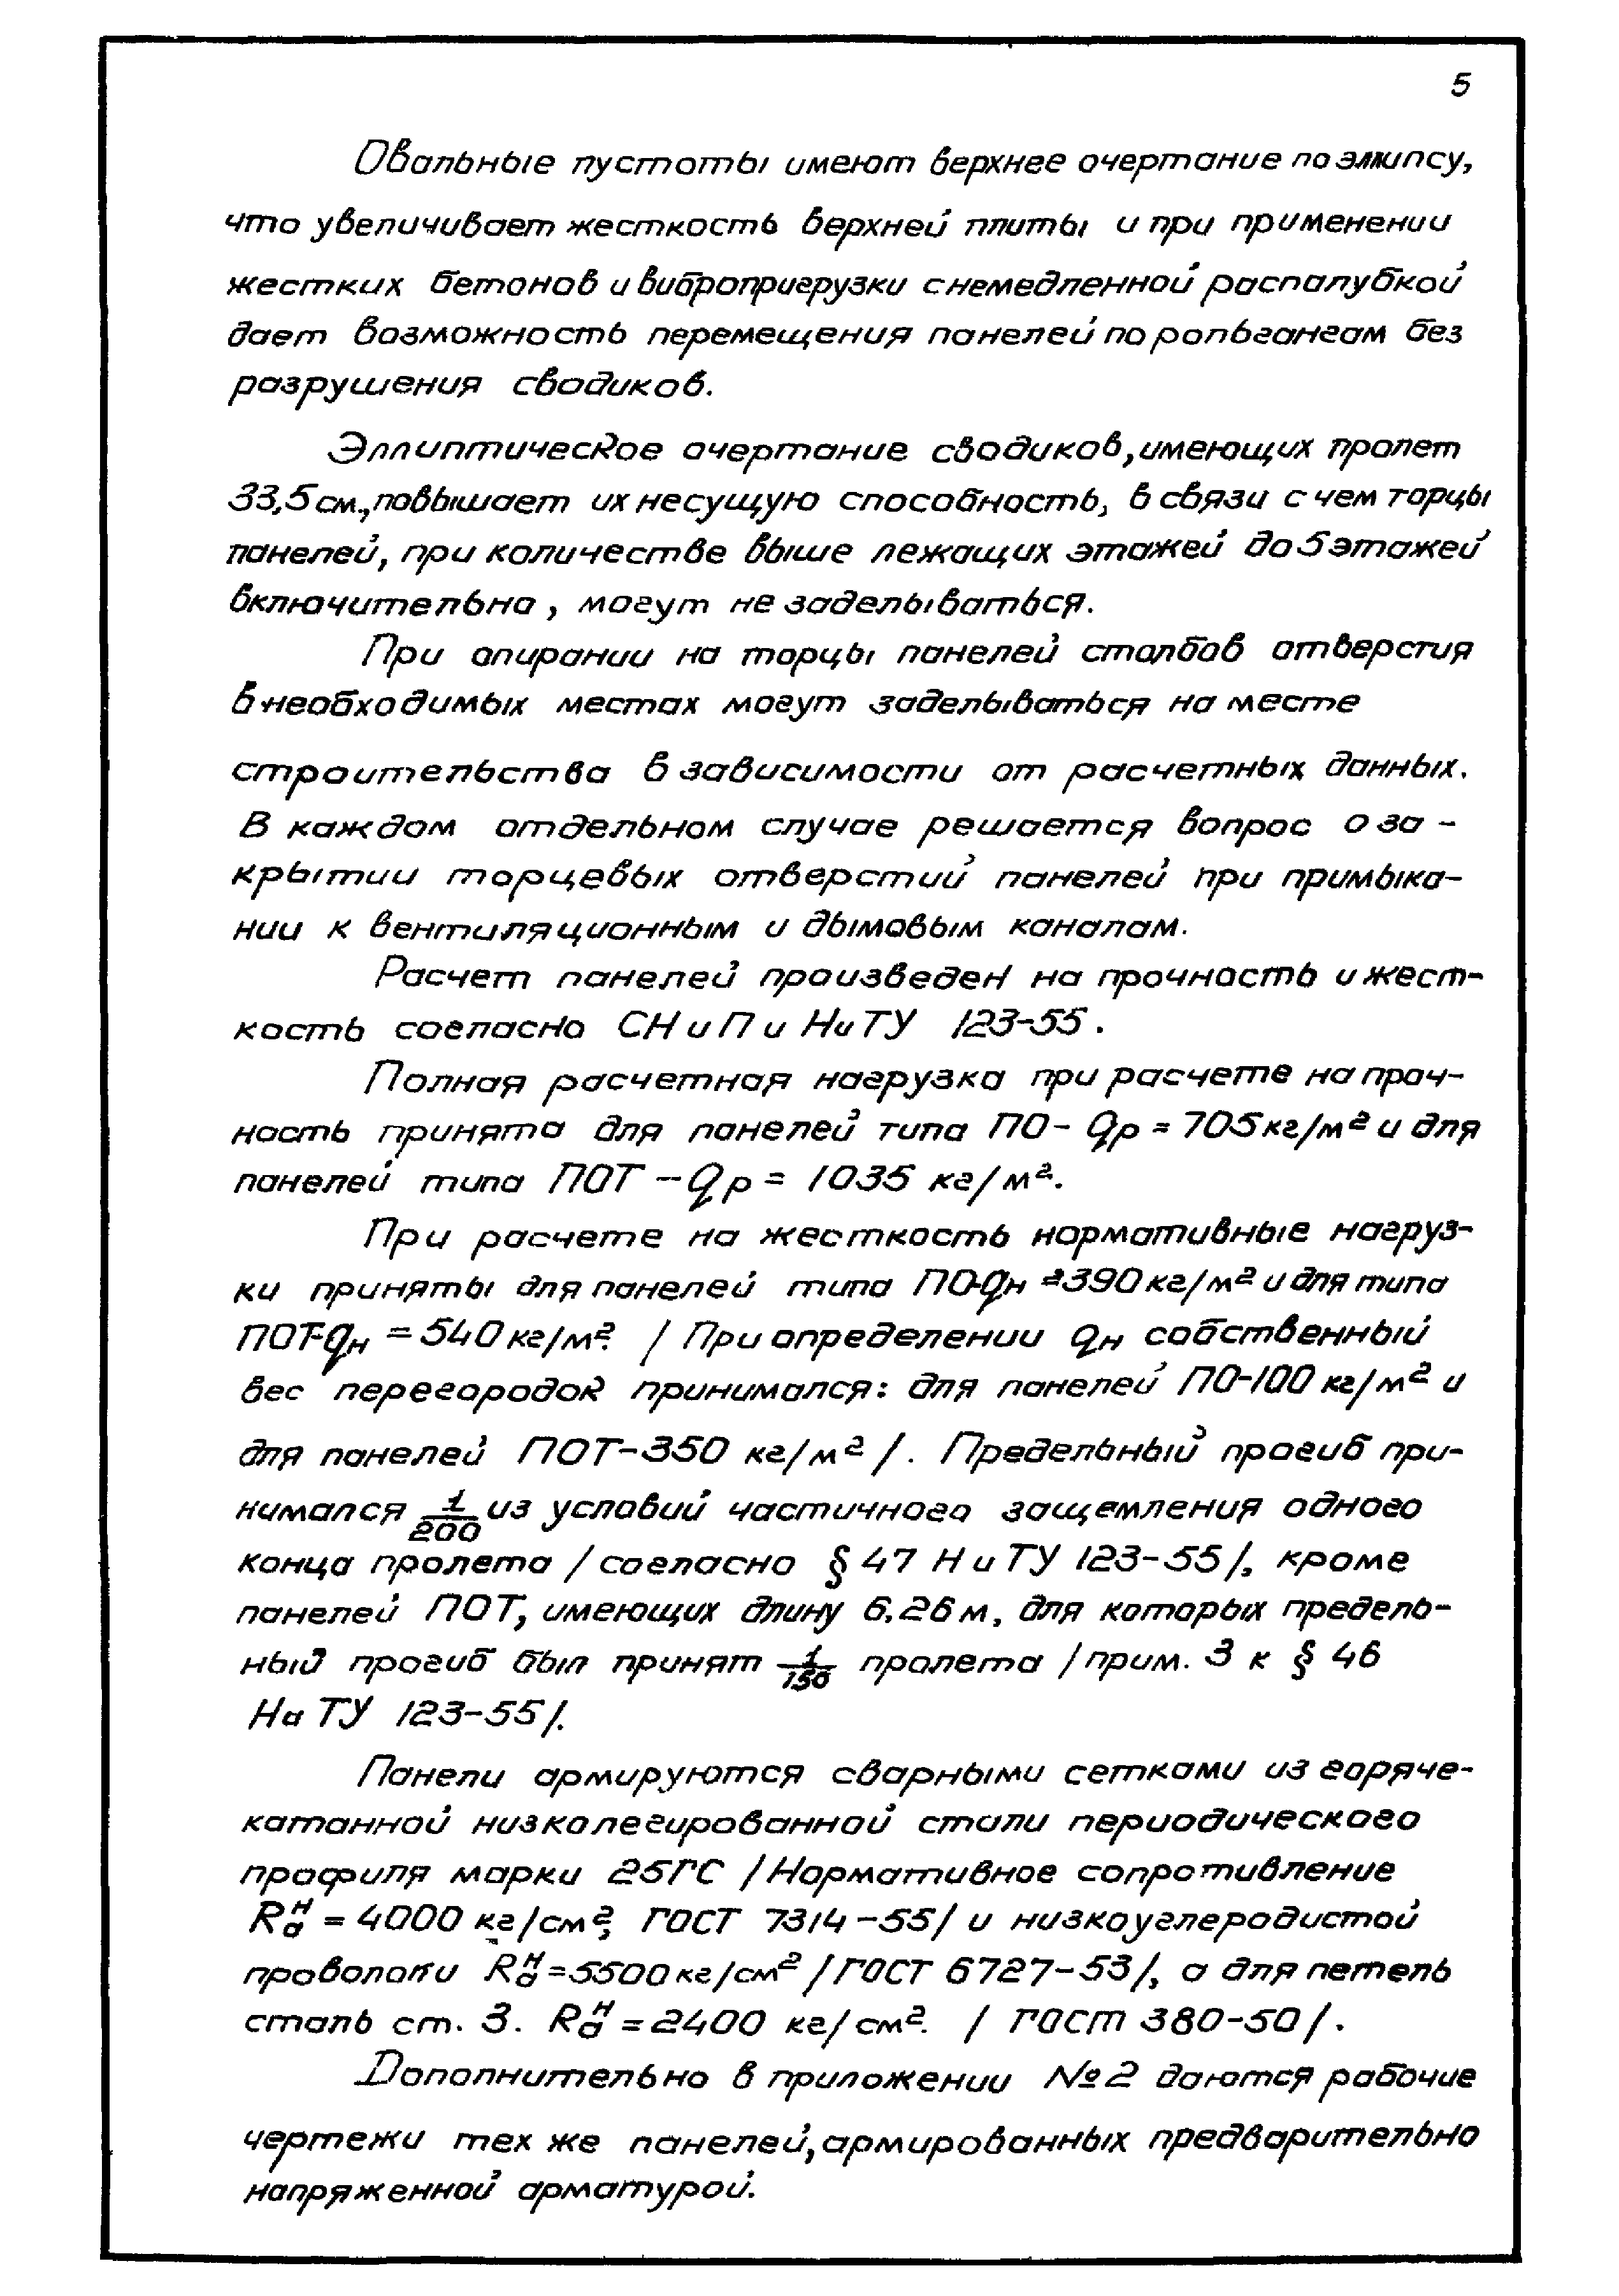 5
Овальные пустоты имеют верхнее очертание по эллипсу,
что увеличивает жесткость верхней плиты и при применении
жестких бетонов и вибропригрузки с немедленной распалубкой
дает возможность перемещения панелей по рольгангам без
разрушения сводиков.
Эллиптическое очертание сводиков, имеющих пролет
33,5 см., повышает их несущую способность, в связи с чем торцы
панелей, при количестве выше лежащих этажей до 5 этажей
включительно, могут не заделываться.
При опирании на торцы панелей столбов отверстия
в необходимых местах могут заделываться на месте
строительства в зависимости от расчетных данных.
В каждом отдельном случае решается вопрос о за-
крытии торцевых отверстий панелей при примыка-
нии к вентиляционным и дымовым каналам.
Расчет панелей произведен на прочность и жест-
кость согласно СН и П и Н и ТУ 123-55.
Полная расчетная нагрузка при расчете на проч-
ность принята для панелей типа ПО- qр = 705 кг/м² и для
панелей типа ПОТ - qр = 1035 кг/м².
При расчете на жесткость нормативные нагруз-
ки приняты для панелей типа ПО-qн = 390 кг/м² и для типа
ПОТ-qн = 540 кг/м². / При определении qн собственный
вес перегородок принимался: для панелей ПО-100 кг/м² и
для панелей ПОТ-350 кг/м² /. Предельный прогиб при-
нимался 1/200 из условий частичного защемления одного
конца пролета / согласно § 47 Н и ТУ 123-55 /, кроме
панелей ПОТ, имеющих длину 6.26 м, для которых предель-
ный прогиб был принят 1/150 пролета / прим. 3 к § 46
Н и ТУ 123-55 /.
Панели армируются сварными сетками из горяче-
катанной низколегированной стали периодического
профиля марки 25ГС / Нормативное сопротивление
Rₐᴴ = 4000 кг/см², ГОСТ 7314-55 / и низкоуглеродистой
проволоки Rₐᴴ = 5500 кг/см² / ГОСТ 6727-53 /, а для петель
сталь ст. 3. Rₐᴴ = 2400 кг/см². / ГОСТ 380-50 /.
Дополнительно в приложении №2 даются рабочие
чертежи тех же панелей, армированных предварительно
напряженной арматурой.